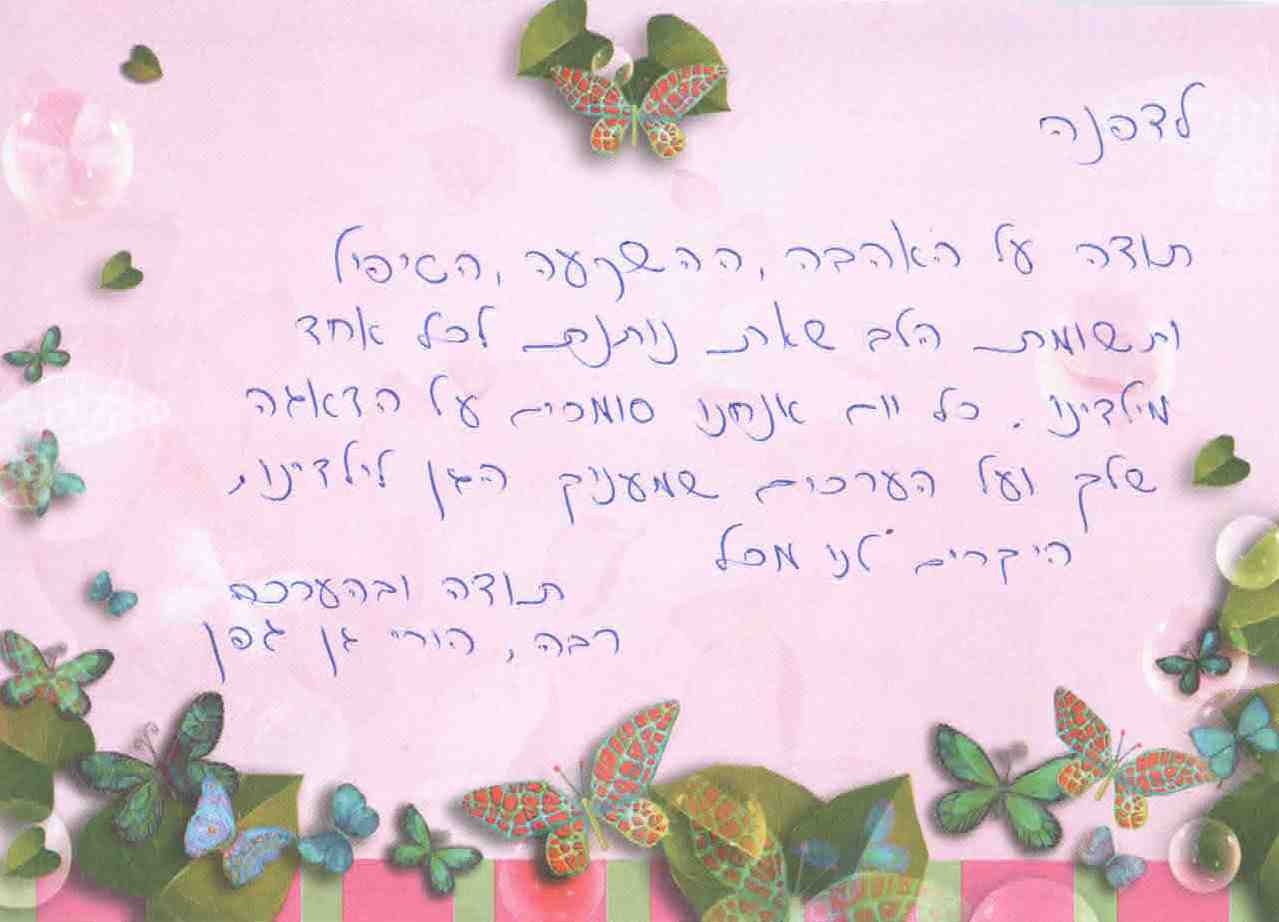 לדפנה
תודה על האהבה, ההשקעה, הטיפול
ותשומת הלב שאת נותנת לכל אחד
מילדינו. כל יום אנחנו סומכים על הדאגה
שלך ועל הערכים שמעניק הגן לילדינו,
היקרים לנו מכל
תודה ובהערכה
רבה, הורי גן גפן